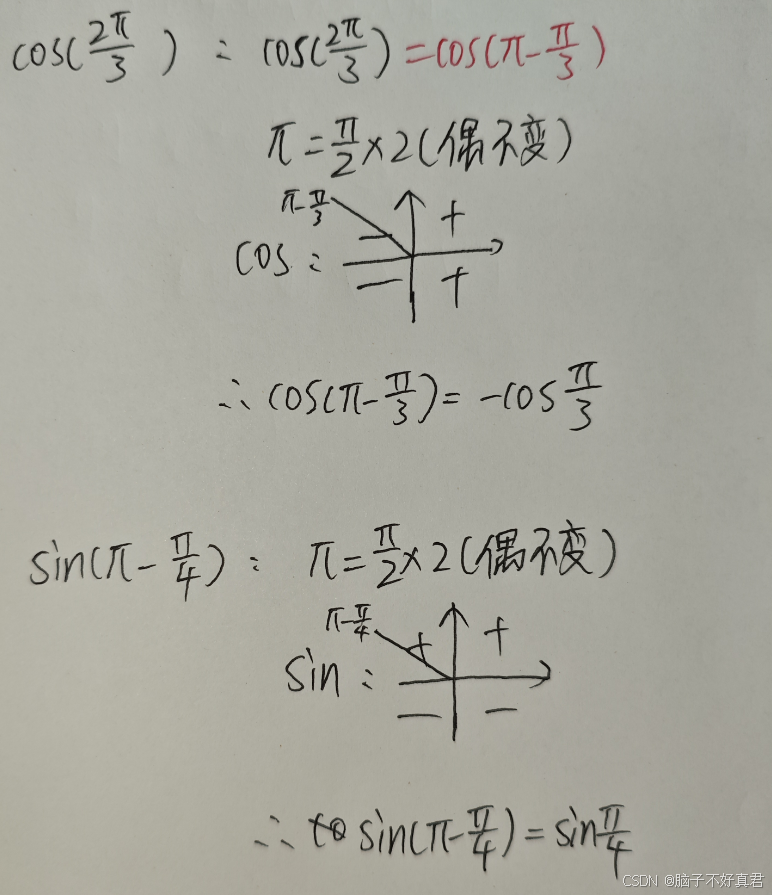 cos(2π/3) : cos(2π/3) = cos(π-π/3)
π = π/2 × 2 (偶不变)
π-π/3
+
cos : −
− +
∴ cos(π-π/3) = -cos π/3
sin(π-π/4) : π = π/2 × 2 (偶不变)
π-π/4 + +
sin :
− −
∴ sin(π-π/4) = sin π/4
CSDN @脑子不好真君